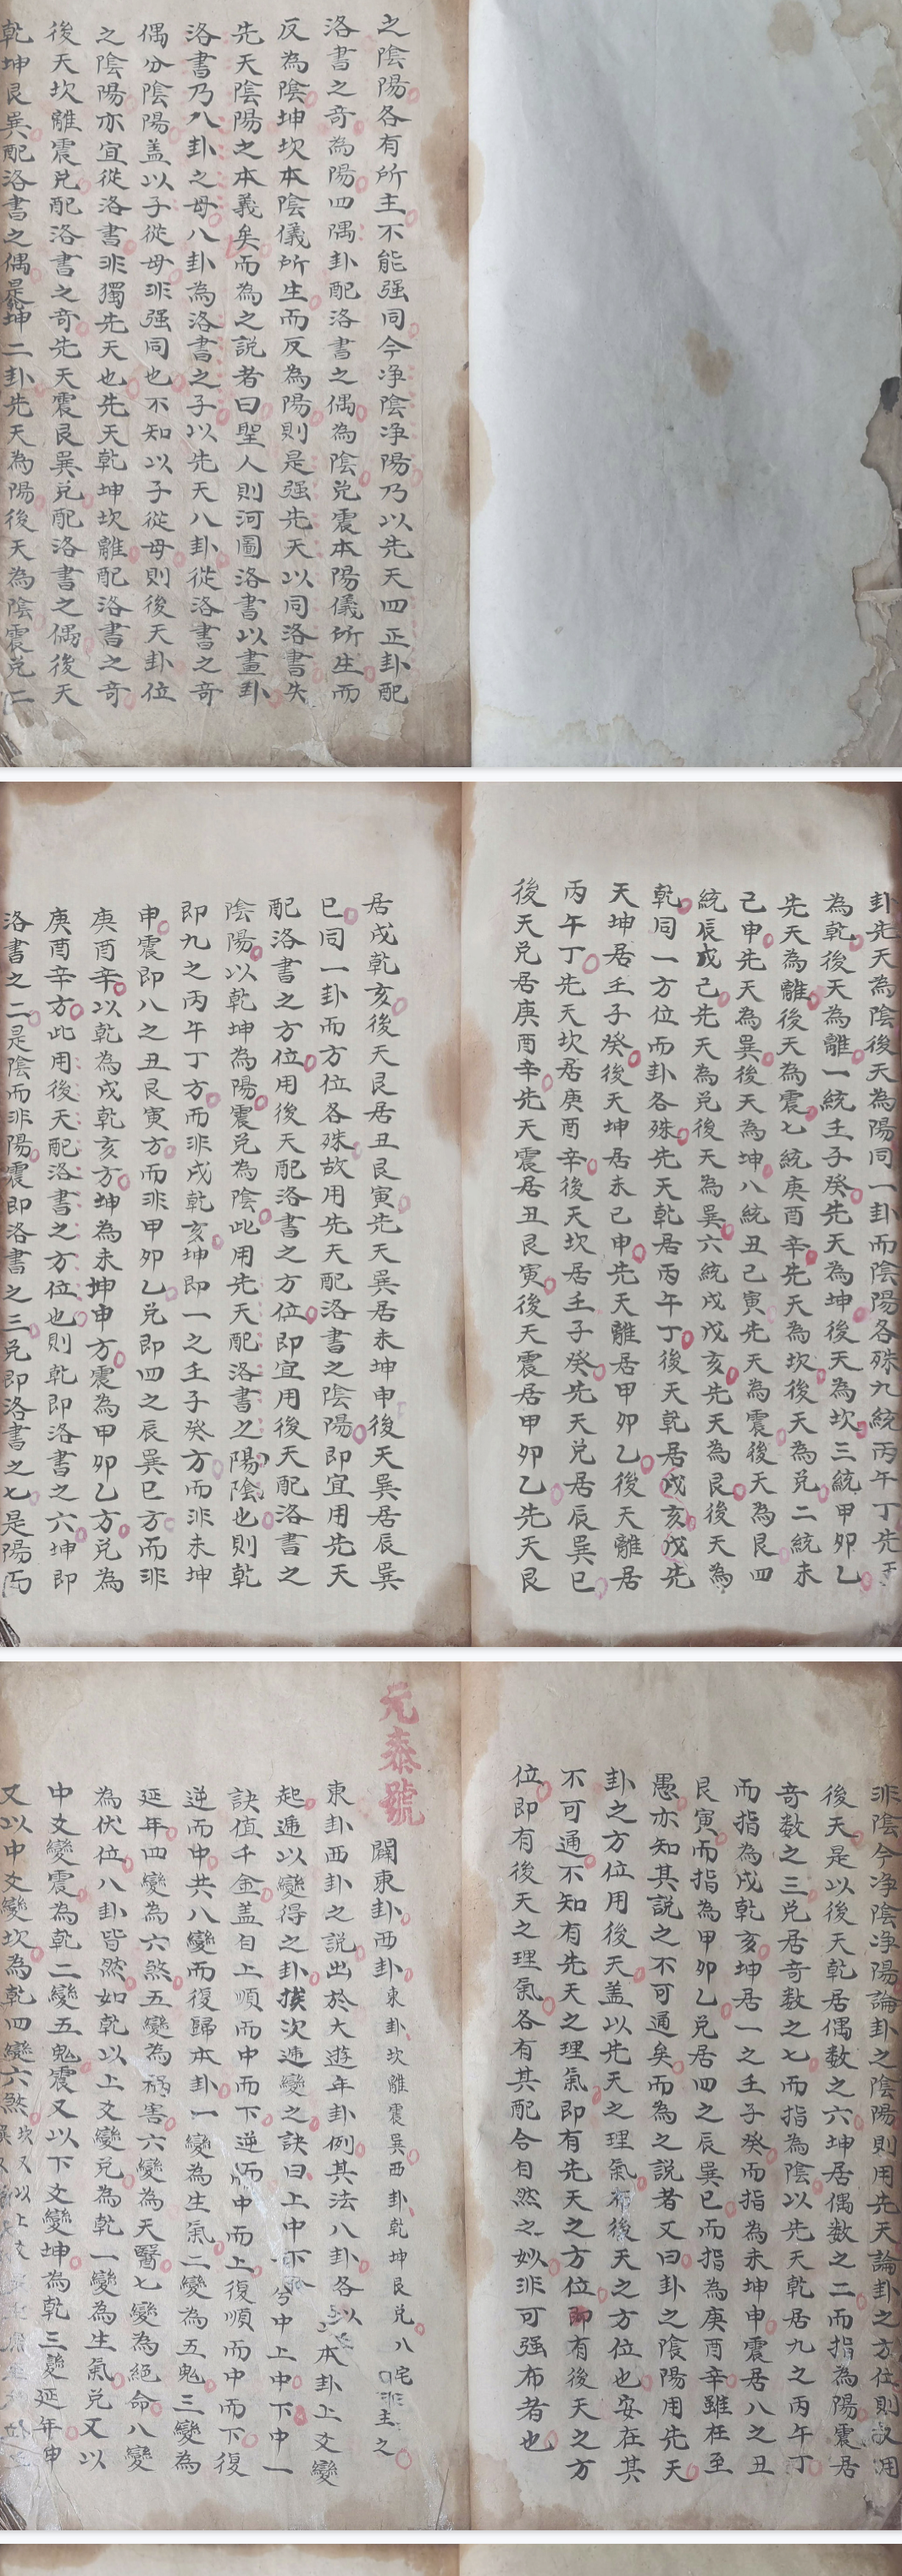 之陰陽各有所主不能强同今净陰净陽乃以先天四正卦配
洛書之奇為陽四隅卦配洛書之偶為陰兌震本陽儀所生而
反為陰坤坎本陰儀所生而反為陽則是强先天以同洛書失
先天陰陽之本義矣而為之說者曰聖人則河圖洛書以畫卦
洛書乃八卦之母八卦為洛書之子以先天八卦從洛書之奇
偶分陰陽盖以子從母非强同也不知以子從母則後天卦位
之陰陽亦宜從洛書非獨先天也先天乾坤坎離配洛書之奇
後天坎離震兌配洛書之奇先天震艮巽兌配洛書之偶後天
乾坤艮巽配洛書之偶是乾坤二卦先天為陽後天為陰震兌二
卦先天為陰後天為陽同一卦而陰陽各殊九統丙午丁先天
為乾後天為離一統壬子癸先天為坤後天為坎三統甲卯乙
先天為離後天為震七統庚酉辛先天為坎後天為兌二統未
己申先天為巽後天為坤八統丑己寅先天為震後天為艮四
統辰戌己先天為兌後天為巽六統戌戊亥先天為艮後天為
乾同一方位而卦各殊先天乾居丙午丁後天乾居戌亥戊先
天坤居壬子癸後天坤居未己申先天離居甲卯乙後天離居
丙午丁先天坎居庚酉辛後天坎居壬子癸先天兌居辰巽巳
後天兌居庚酉辛先天震居丑艮寅後天震居甲卯乙先天艮
居戌乾亥後天艮居丑艮寅先天巽居未坤申後天巽居辰巽
巳同一卦而方位各殊故用先天配洛書之陰陽即宜用先天
配洛書之方位用後天配洛書之方位即宜用後天配洛書之
陰陽以乾坤為陽震兌為陰此用先天配洛書之陽陰也則乾
即九之丙午丁方而非戌乾亥坤即一之壬子癸方而非未坤
申震即八之丑艮寅方而非甲卯乙兌即四之辰巽巳方而非
庚酉辛以乾為戌乾亥方坤為未坤申方震為甲卯乙方兌為
庚酉辛方此用後天配洛書之方位也則乾即洛書之六坤即
洛書之二是陰而非陽震即洛書之三兌即洛書之七是陽而
非陰今净陰净陽論卦之陰陽則用先天論卦之方位則又用
後天是以後天乾居偶数之六坤居偶数之二而指為陽震居
奇数之三兌居奇数之七而指為陰以先天乾居九之丙午丁
而指為戌乾亥坤居一之壬子癸而指為未坤申震居八之丑
艮寅而指為甲卯乙兌居四之辰巽巳而指為庚酉辛雖枉至
愚亦知其說之不可通矣而為之說者又曰卦之陰陽用先天
卦之方位用後天盖以先天之理氣布後天之方位也安在其
不可通不知有先天之理氣即有先天之方位即有後天之方
位即有後天之理氣各有其配合自然之妙非可强布者也
元泰號
闢東卦西卦東卦坎離震巽西卦乾坤艮兌八宅主之
東卦西卦之說出於大遊年卦例其法八卦各以本卦上爻變
起遞以變得之卦挨次遞變之訣曰上中下兮中上中下中一
訣值千金盖自上順而中而下逆而中而上復順而中而下復
逆而中共八變而復歸本卦一變為生氣二變為五鬼三變為
延年四變為六煞五變為禍害六變為天醫七變為絕命八變
為伏位八卦皆然如乾以上爻變兌為乾一變為生氣兌又以
中爻變震為乾二變五鬼震又以下爻變坤為乾三變延年申
又以中爻變坎為乾四變六煞坎又以上